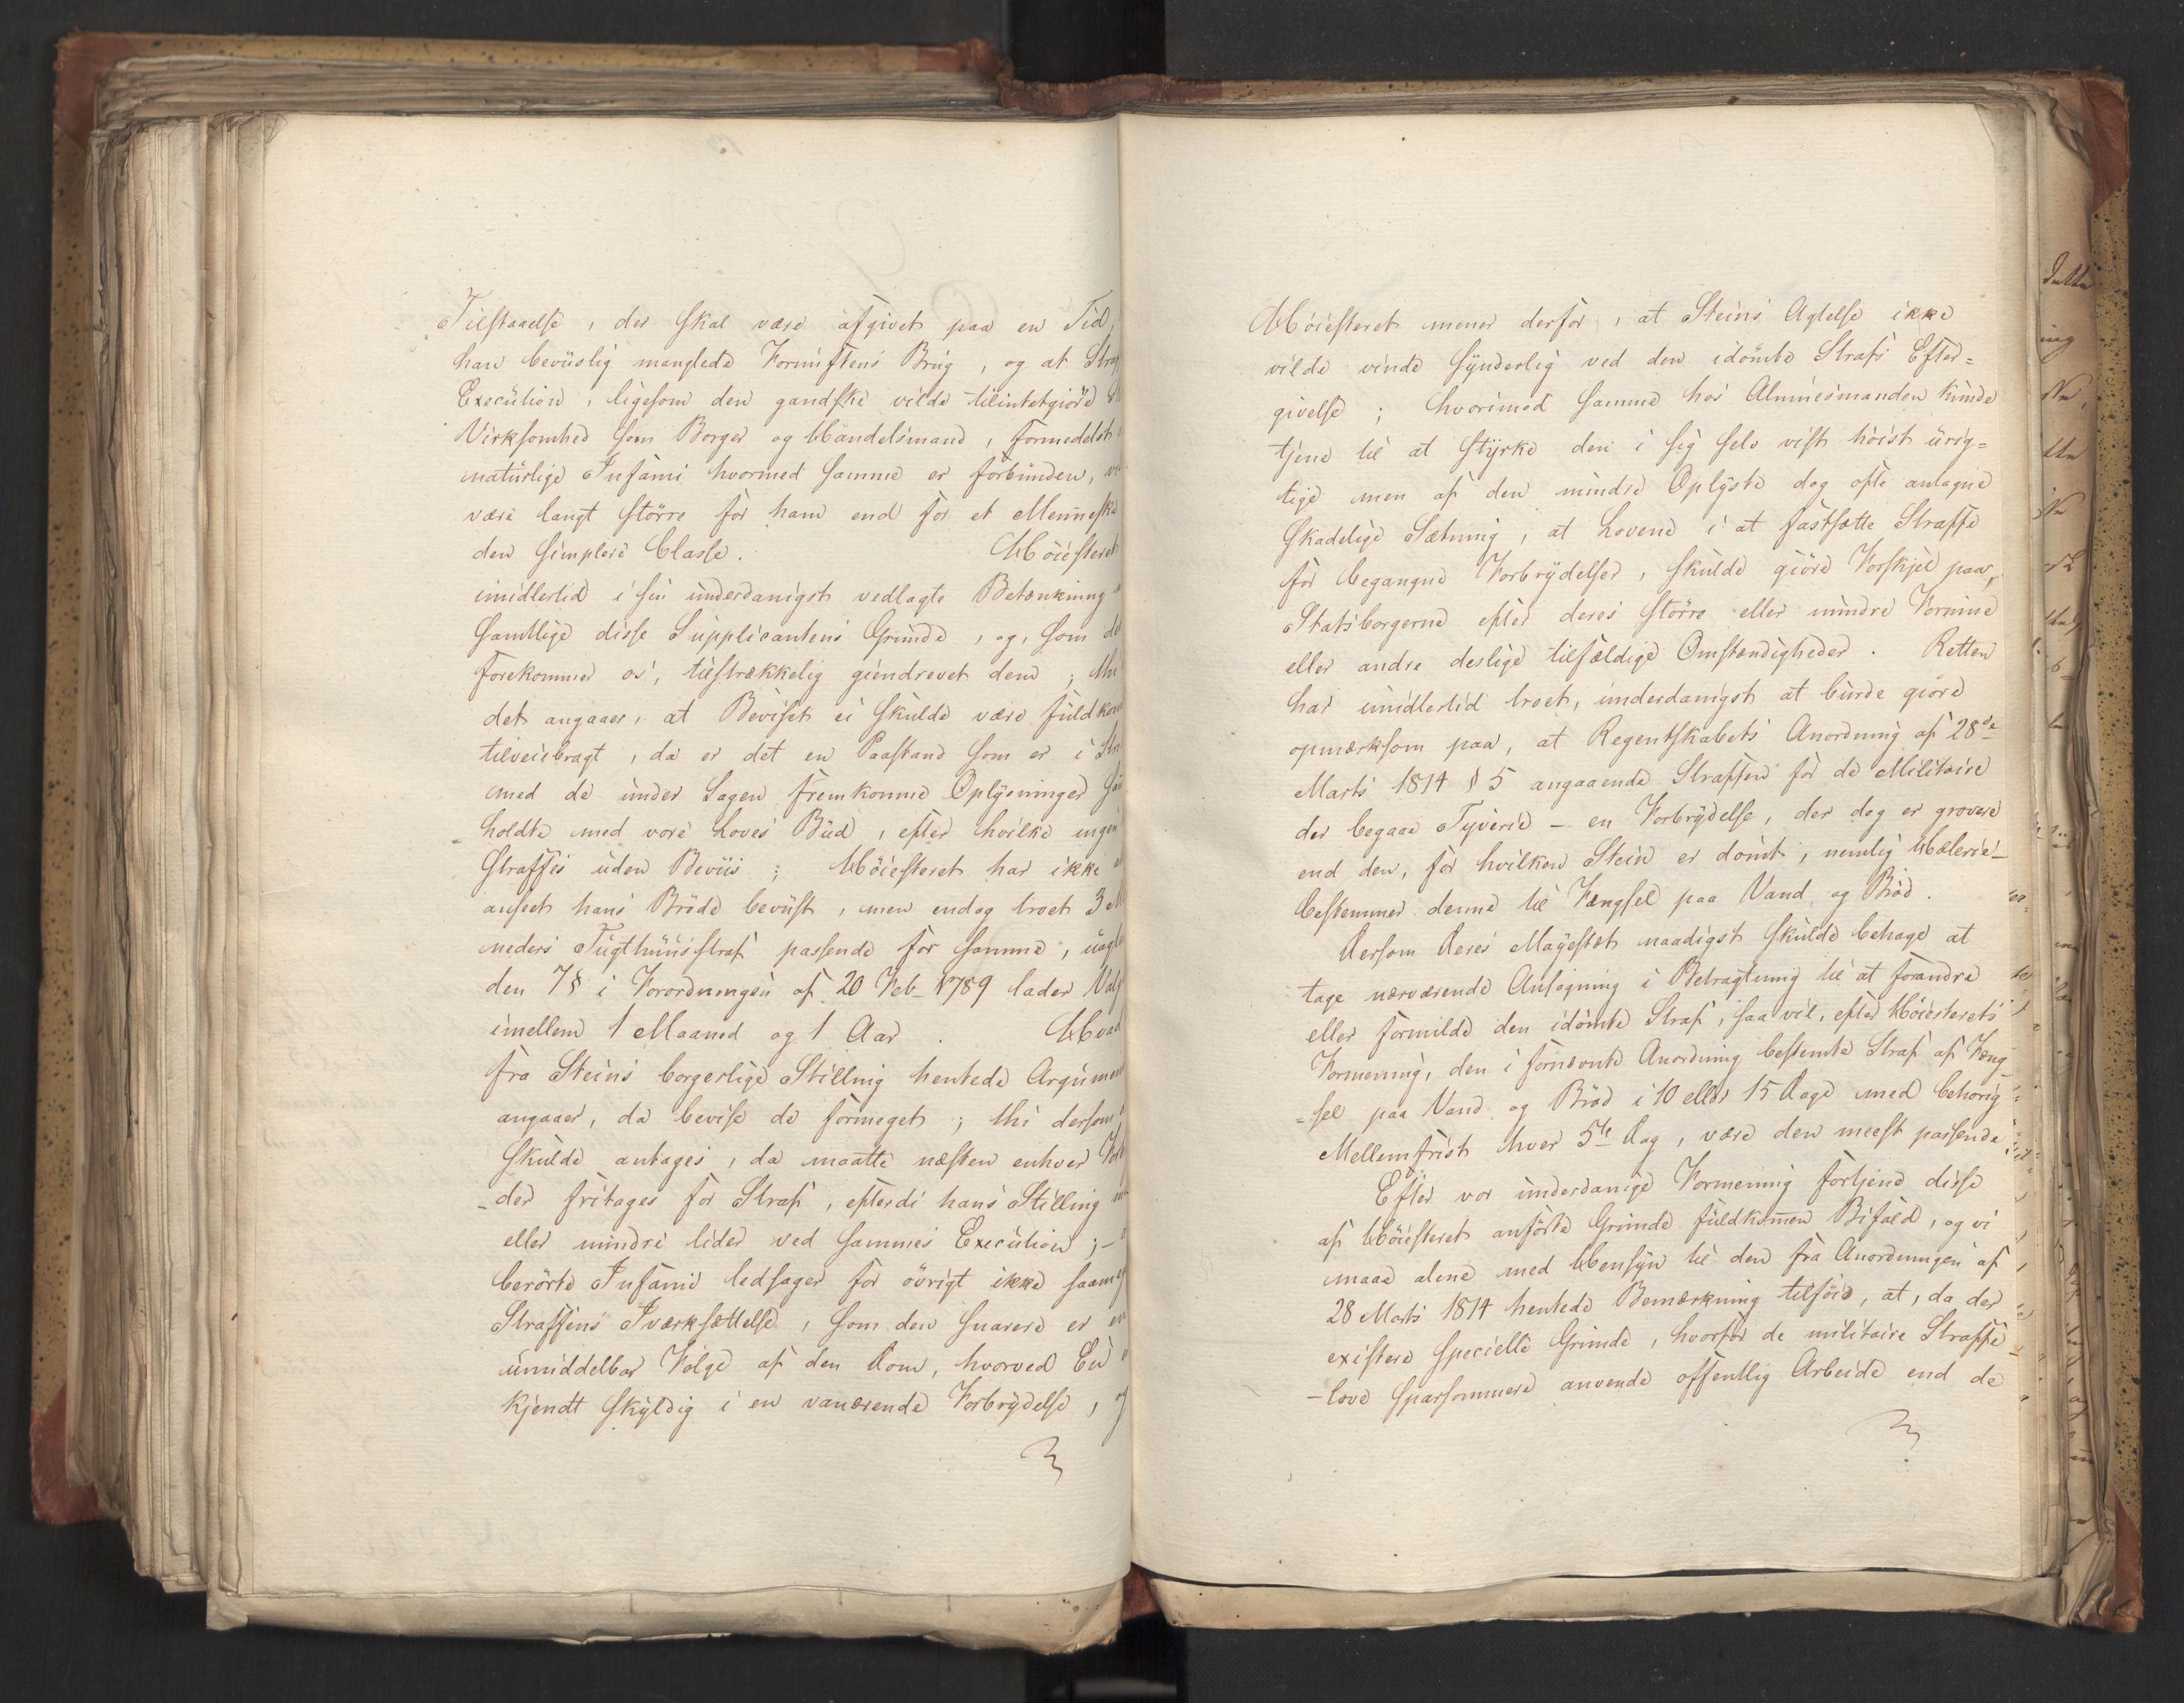 Tilstaaelse, der skal være afgivet paa en Tid,
han beviislig manglede Fornuftens Brug, og at
Execution, ligesom den gandske vilde tilintetgiøre
Virksomhed som Borger og Handelsmand, formedelst
naturlige Infami hvormed samme er forbunden,
være langt større for ham end for et Menneske
den simplere Classe. Høiesteret
imidlertid i sin underdanigst vedlagte Betænkning
samtlige disse Supplicantens Grunde, og, som det
forekommer os, tilstrækkelig giendrevet dem; thi
det angaaer, at Beviset ei skulde være fuldkom
tilveiebragt, da er det en Paastand som er i
med de under Sagen fremkomne Oplysninger
holdte med vore Loves Bud, efter hvilke ingen
straffes uden Beviis; Høiesteret har ikke
anseet hans Brøde beviist, men endog troet 3
neders Tugthuusstraf passende for samme, uagtet
den 7 § i Forordningen af 20 Feb 1789 lader Valg
imellem 1 Maaned og 1 Aar. Hvad
fra Steins borgerlige Stilling hentede Argument
angaaer, da bevise de formeget; thi dersom
skulde antages, da maatte næsten enhver
der fritages for Straf, efterdi hans Stilling
eller mindre lider ved sammes Execution; -
berørte Infamie ledsager for øvrigt ikke saameget
Straffens Iværksættelse, som den snarere er en
umiddelbar Følge af den Dom, hvorved En
kjendt skyldig i en vanærende Forbrydelse, og
Høiesteret mener derfor, at Steins Agtelse ikke
vilde vinde synderlig ved den idømte Strafs Efter=
givelse; hvorimod samme hos Almuesmanden kunde
tjene til at styrke den i sig selv vist høist urig=
tige men af den mindre Oplyste dog ofte antagne
skadelige Sætning, at Lovene i at fastsætte Straffe
for begangne Forbrydelser, skulde giøre Forskjel paa
Statsborgerne efter deres større eller mindre Formue
eller andre deslige tilfældige Omstændigheder. Retten
har imidlertid troet, underdanigst at burde giøre
opmærksom paa, at Regentskabets Anordning af 28de
Marts 1814 § 5 angaaende Straffen for de Militaire
der begaae Tyverie - en Forbrydelse, der dog er grovere
end den, for hvilken Stein er dømt, nemlig Hælerie -
bestemmer denne til Fængsel paa Vand og Brød.
Dersom Deres Majestæt naadigst skulde behage at
tage nærværende Ansøgning i Betragtning til at forandre
eller formilde den idømte Straf, saa vil, efter Høiesterets
Formening, den i fornævnte Anordning bestemte Straf af Fæng
=sel paa Vand og Brød i 10 eller 15 Dage med behørig
Mellemfrist hver 5te Dag, være den meest passende
Efter vor underdanige Formening fortjene disse
af Høiesteret anførte Grunde fuldkommen Bifald, og vi
maae alene med Hensyn til den fra Anordningen af
28 Marts 1814 hentede Bemærkning tilføie, at, da der
existere specielle Grunde, hvorfor de militaire Straffe
-love sparsommere anvende offentlig Arbeide end de